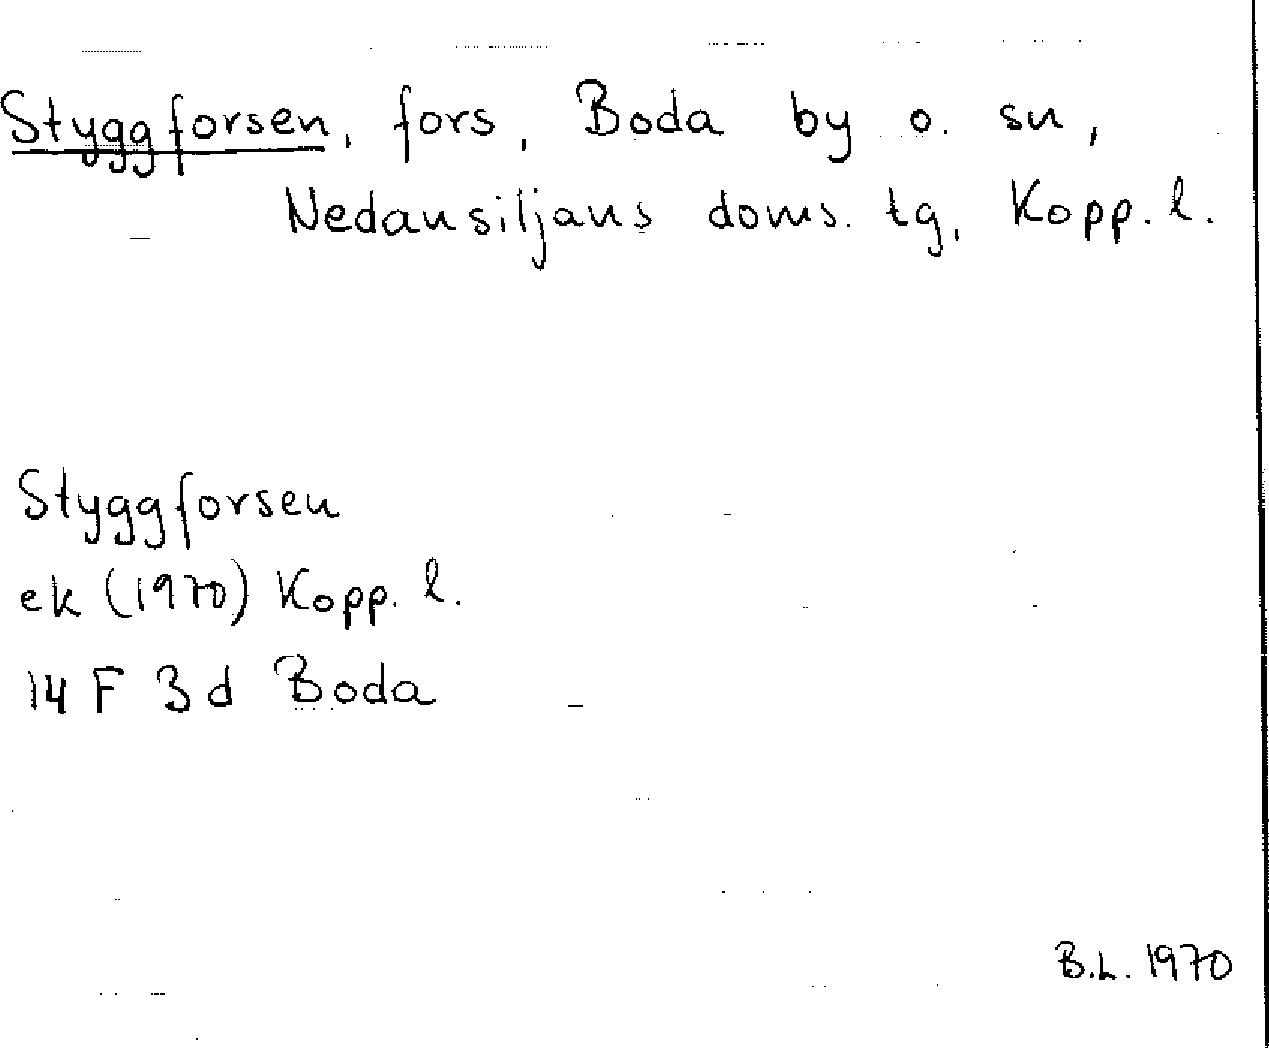 Styggforsen, fors, Boda by o. sn,
Nedansiljans doms. tg, Kopp. l.
Styggforsen
ek (1970) Kopp. l.
14 F 3 d Boda
B.L. 1970